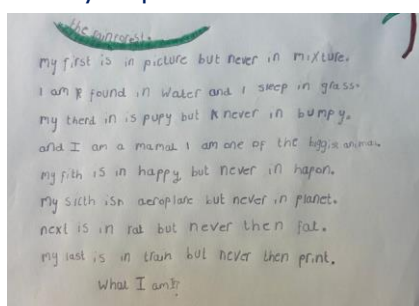 the rainforest.
my first is in picture but never in mixture.
I am found in water and I sleep in grass.
my therd in is pupy but never in bumpy.
and I am a mamal I am one of the animal.
my fith is in happy but never in hapon.
my sicth isn aeroplane but never in planet.
next is in rat but never then jat.
my last is in train but never then print.
What I am?